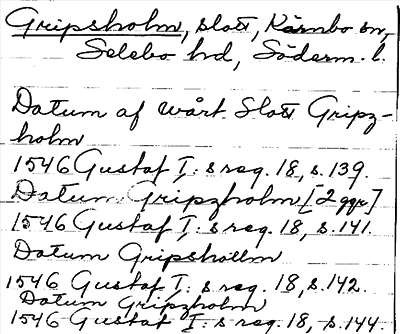 Gripsholm, slott, Kärnbo sn,
Selebo hd, Söderm. l.
Datum af wårt Slott Gripz-
holm
1546 Gustaf I:s reg. 18, s. 139.
Datum Gripzholm [2 ggr]
1546 Gustaf I:s reg. 18, s. 141.
Datum Gripshollm
1546 Gustaf I:s reg. 18, s. 142.
Datum Gripzholm
1546 Gustaf I:s reg. 18, s. 144.